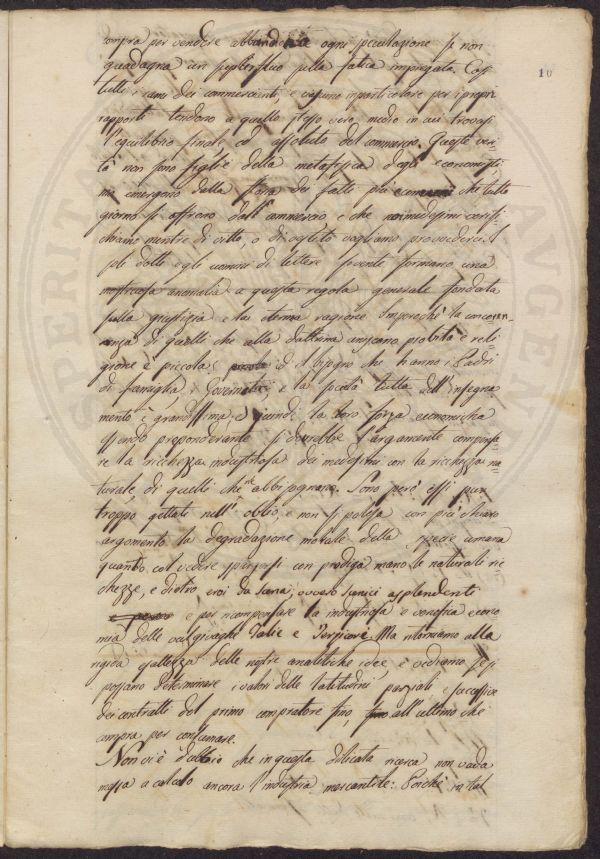 10
compra per vendere abbandona ogni speculazione se non
guadagna un superfluo sulla fatica impiegata. Così
tutti i rami dei commercianti, e ciascuno in particolare per i propri
rapporti tendono a quello stesso vero, medio in cui trovasi
l'equilibrio finale, ed assoluto del commercio. Queste veri=
tà non sono figlie della metafisica degli economisti,
ma emergono dalla dei fatti più comuni che tutto
giorno si offrono dall'commercio, e che noi medesimi verifi=
chiamo mentre di vitto, o di vestito vogliamo provvederci. I
soli dotti e gli uomini di lettere sovente formano una
mostruosa anomalia a questa regola generale fondata
sulla giustizia e la eterna ragione. Imperochè la concorren=
za di quelli che alla dottrina uniscano probità e reli
gione è piccola; ed il bisogno che hanno i Padri
di famiglia, i Governatori, e la società tutta dell'insegna
mento è grandissima, e quindi la loro forza economica
essendo preponderante si dovrebbe largamente compensa
re la ricchezza industriosa dei medesimi con la ricchezza na
turale di quelli che ne abbisognano. Sono però essi pur
troppo gettati nell'oblio, e non si potria con più chiaro
argomento la degradazione morale della specie umana
quanto col vedere spargersi con prodiga mano le naturali ric
chezze, e dietro eroi da scena, ovvero scenici
e per ricompensare la industriosa e venefica econo
mia delle Talie e Tersicore. Ma ritorniamo alla
rigida esattezza delle nostre analitiche idee, e vediamo se si
possano determinare i valori delle latitudini parziali e successive
dei contratti dal primo compratore fino, all'ultimo che
compra per consumare.
Non vi è dubbio che in questa dilicata ricerca non vada
messa a calcolo ancora l'industria mercantile: Perchè in tal